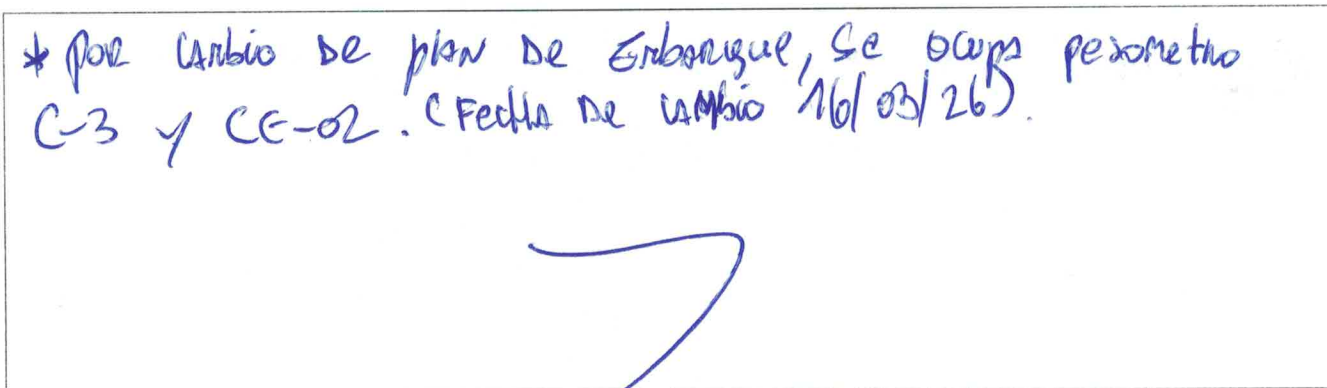 * Por cambio de plan de Embarque, se ocupa pesometro
C-3 y CE-02. (Fecha de cambio 16/03/26).